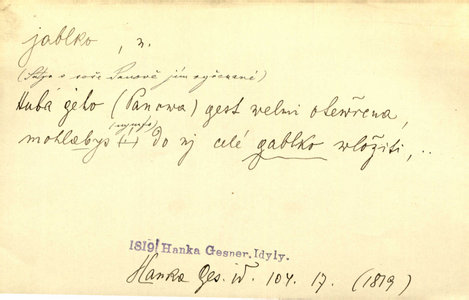 jablko, n.
(Satyr o soše Panově jím vyřezané)
Hubá geho (Pánowa) gest welmi otewřena,
mohlabys (nymfo) (–) do nj celé gablko wložiti, ..
1819! Hanka Gesner, Idyly.
Hanka Ges. id. 104. 17. (1819)